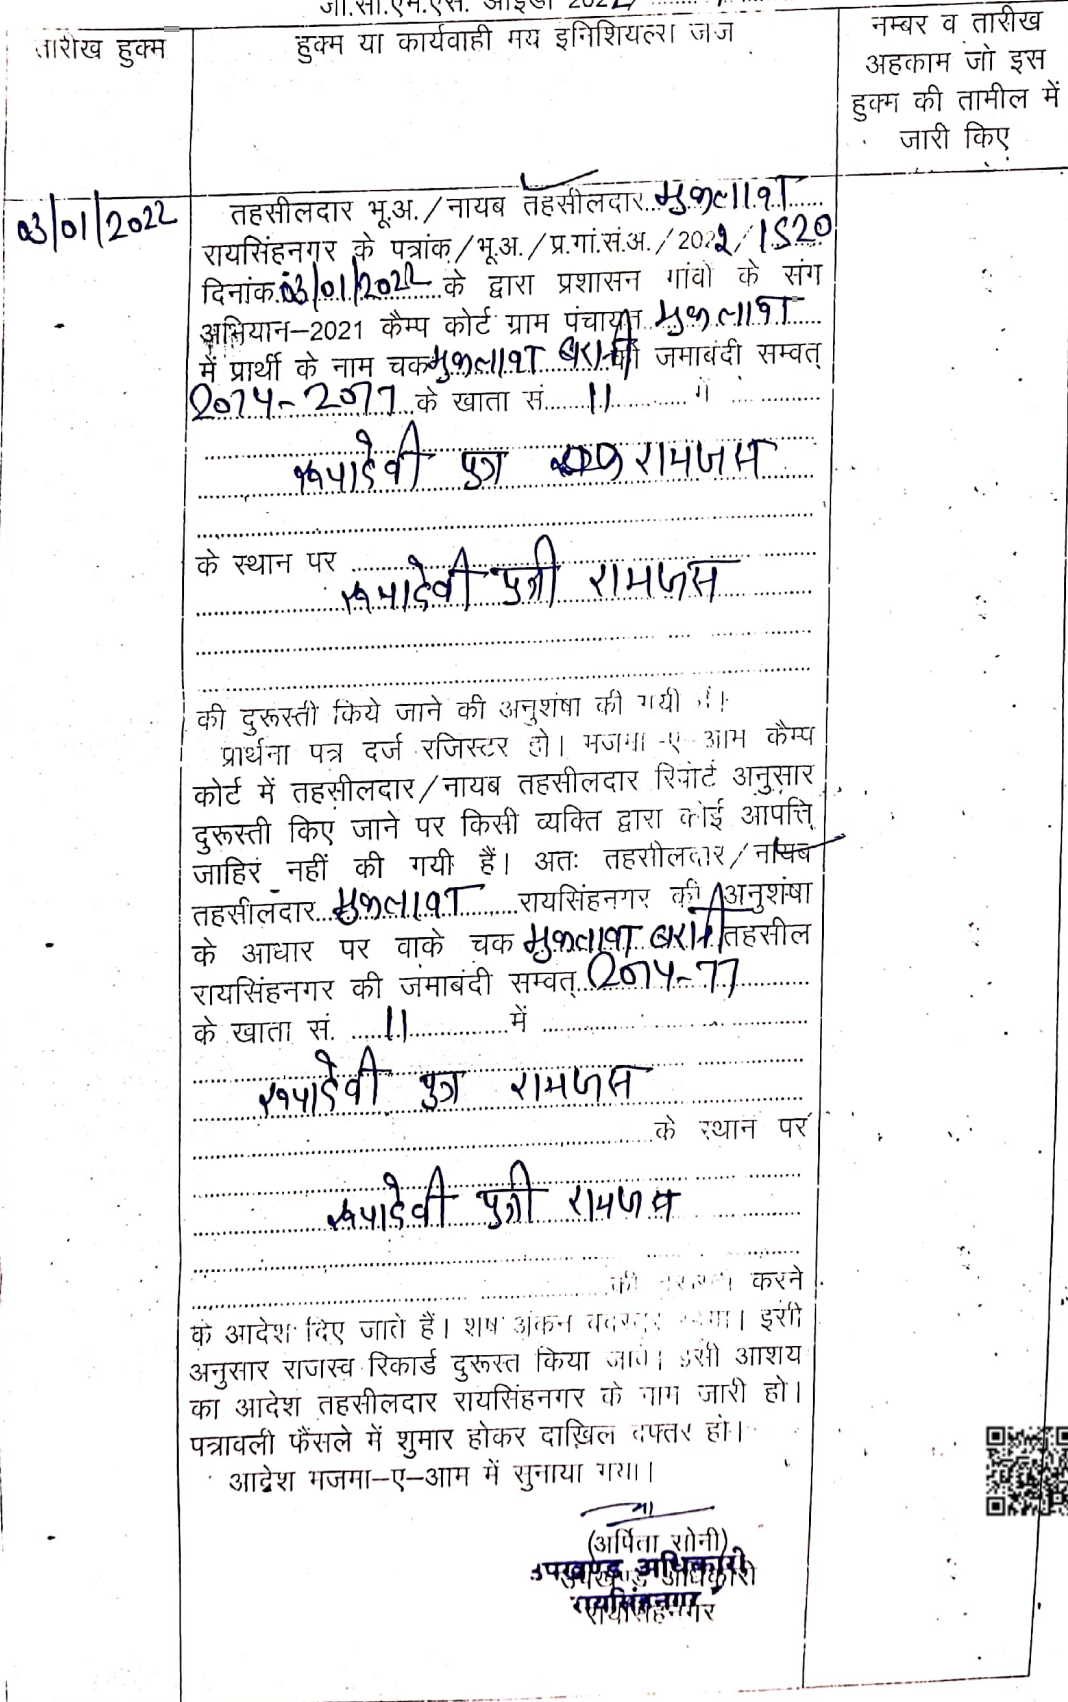 जी.सी.एम.एस. आईडी 2022/
तारीख हुक्म
हुक्म या कार्यवाही मय इनिशियल्स जज
नम्बर व तारीख
अहकाम जो इस
हुक्म की तामील में
जारी किए
03/01/2022
तहसीलदार भू.अ./नायब तहसीलदार मुकलावा
रायसिंहनगर के पत्रांक/भू.अ./प्र.गां.सं.अ./2022/1520
दिनांक 03/01/2022 के द्वारा प्रशासन गांवो के संग
अभियान-2021 कैम्प कोर्ट ग्राम पंचायत मुकलावा
में प्रार्थी के नाम चक मुकलावा बारानी की जमाबंदी सम्वत्
2074-2077 के खाता सं. 11 में
रूपादेवी पुत्र रामजस
के स्थान पर
रूपादेवी पुत्री रामजस
की दुरूस्ती किये जाने की अनुशंषा की गयी है।
प्रार्थना पत्र दर्ज रजिस्टर हो। मजमा-ए-आम कैम्प
कोर्ट में तहसीलदार/नायब तहसीलदार रिपोर्ट अनुसार
दुरूस्ती किए जाने पर किसी व्यक्ति द्वारा कोई आपत्ति
जाहिर नहीं की गयी हैं। अतः तहसीलदार/नायब
तहसीलदार मुकलावा रायसिंहनगर की अनुशंषा
के आधार पर वाके चक मुकलावा बारानी तहसील
रायसिंहनगर की जमाबंदी सम्वत् 2074-77
के खाता सं. 11 में
रूपादेवी पुत्र रामजस
के स्थान पर
रूपादेवी पुत्री रामजस
की करने
के आदेश दिए जाते हैं। शेष अंकन इसी
अनुसार राजस्व रिकार्ड दुरूस्त किया जावे। इसी आशय
का आदेश तहसीलदार रायसिंहनगर के नाम जारी हो।
पत्रावली फैसले में शुमार होकर दाखिल दफ्तर हो।
आदेश मजमा-ए-आम में सुनाया गया।
(अर्पिता सोनी)
उपखण्ड अधिकारी
रायसिंहनगर